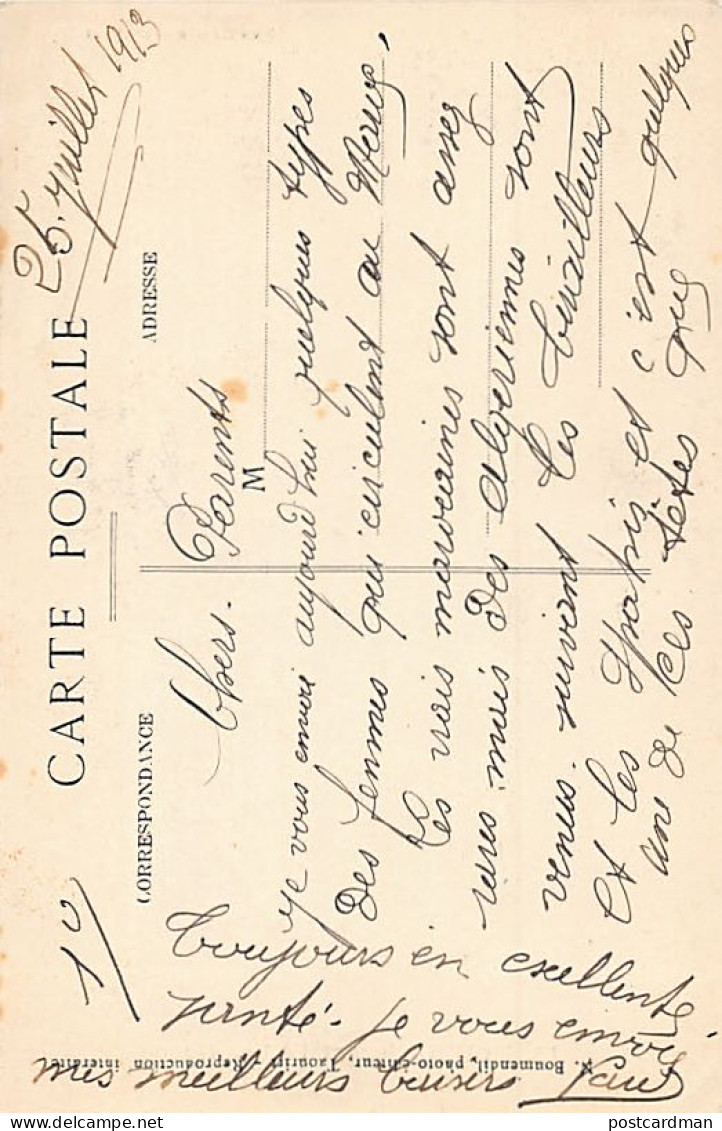 25 Juillet 1913
CARTE POSTALE
CORRESPONDANCE
ADRESSE
M
1º
Chers Parents
Je vous envoie aujourd'hui quelques types
des femmes qui circulent au Maroc.
Les vrais marocaines sont assez
rares mais des algeriennes sont
venus suivant les tirailleurs
et les Spahis et c'est quelques
une de ces têtes que
Toujours en excellente
santé. je vous envoie
mes meilleurs baisers Paul
N. Boumendil, photo-éditeur, Taourirt - Reproduction interdite
postcardman